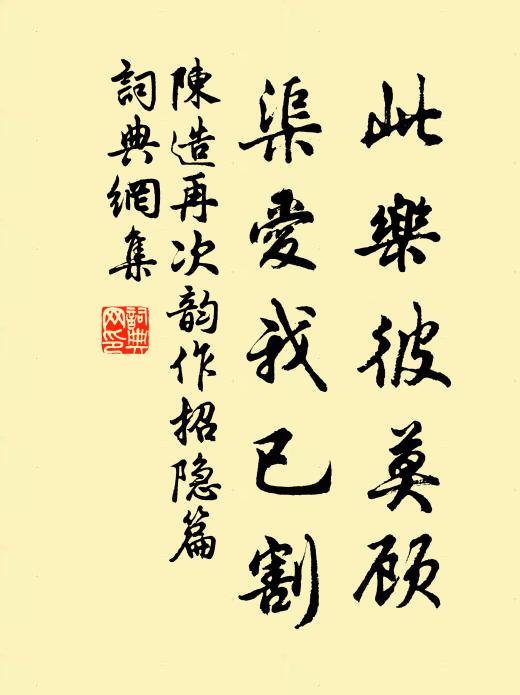 此樂彼莫顾
渠愛我已割
陳造再次韵作招隐篇
詞典網集
詞典网印